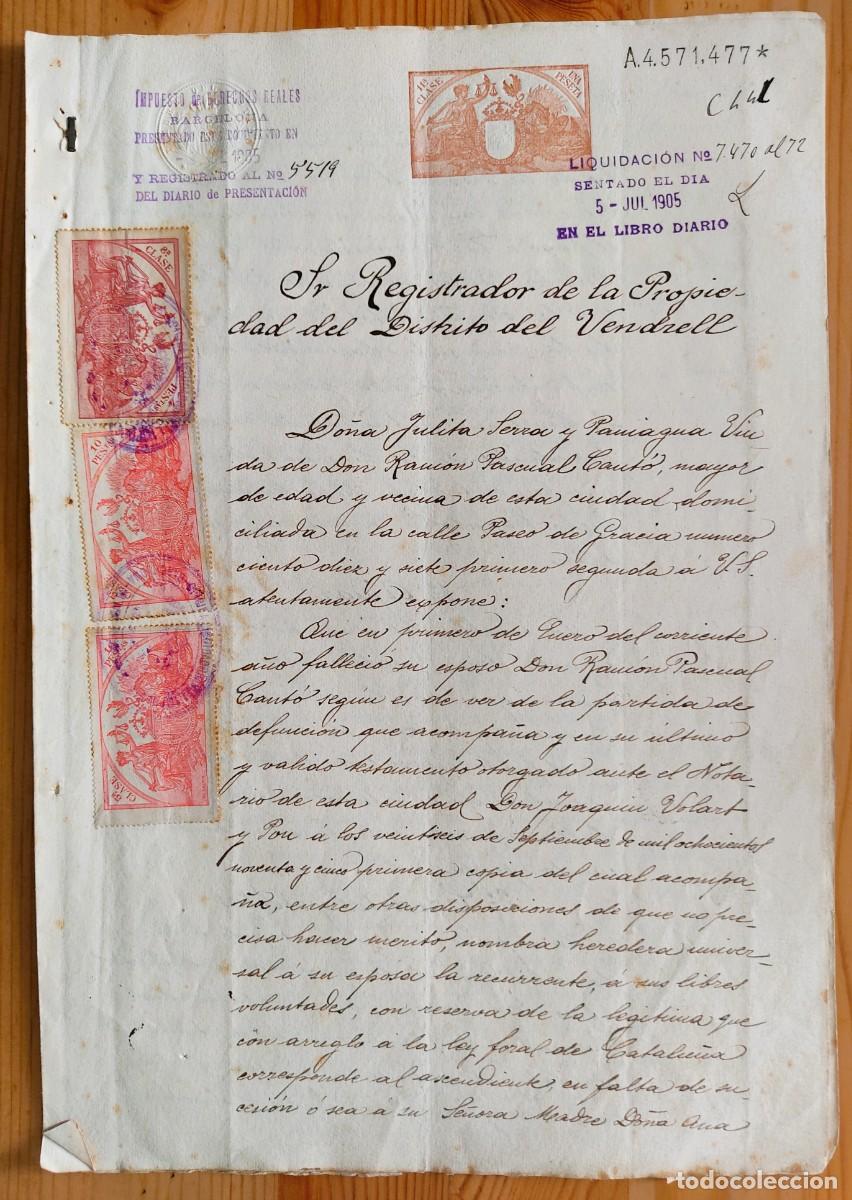 A.4.571.477*
IMPUESTO de DERECHOS REALES
BARCELONA
PRESENTADO ESTE DOCUMENTO EN
1905
Y REGISTRADO AL Nº 5519
DEL DIARIO de PRESENTACIÓN
CLASE
UNA PESETA
LIQUIDACIÓN Nº 7.470 al 72
SENTADO EL DIA
5 - JUL 1905
EN EL LIBRO DIARIO
8ª CLASE
PESETAS
10 PESETAS
8ª CLASE
Sr Registrador de la Propie-
dad del Distrito del Vendrell
Doña Julita Serra y Paniagua Viu-
da de Don Ramón Pascual Cantó, mayor
de edad y vecina de esta ciudad domi-
ciliada en la calle Paseo de Gracia numero
ciento diez y siete primero segunda á V.S.
atentamente expone:
Que en primero de Enero del corriente
año falleció su esposo Don Ramón Pascual
Cantó según es de ver de la partida de
defunción que acompaña y en su último
y valido testamento otorgado ante el Nota-
rio de esta ciudad Don Joaquin Volart
y Pou á los veintseis de Septiembre de mil ochocientos
noventa y cinco primera copia del cual acompa-
ña, entre otras disposiciones de que no pre-
cisa hacer merito, nombra heredera univer-
sal á su esposa la recurrente, á sus libres
voluntades, con reserva de la legitima que
con arreglo á la ley foral de Cataluña
corresponde al ascendiente, en falta de su-
cesión ó sea á su Señora Madre Doña Ana
todocoleccion